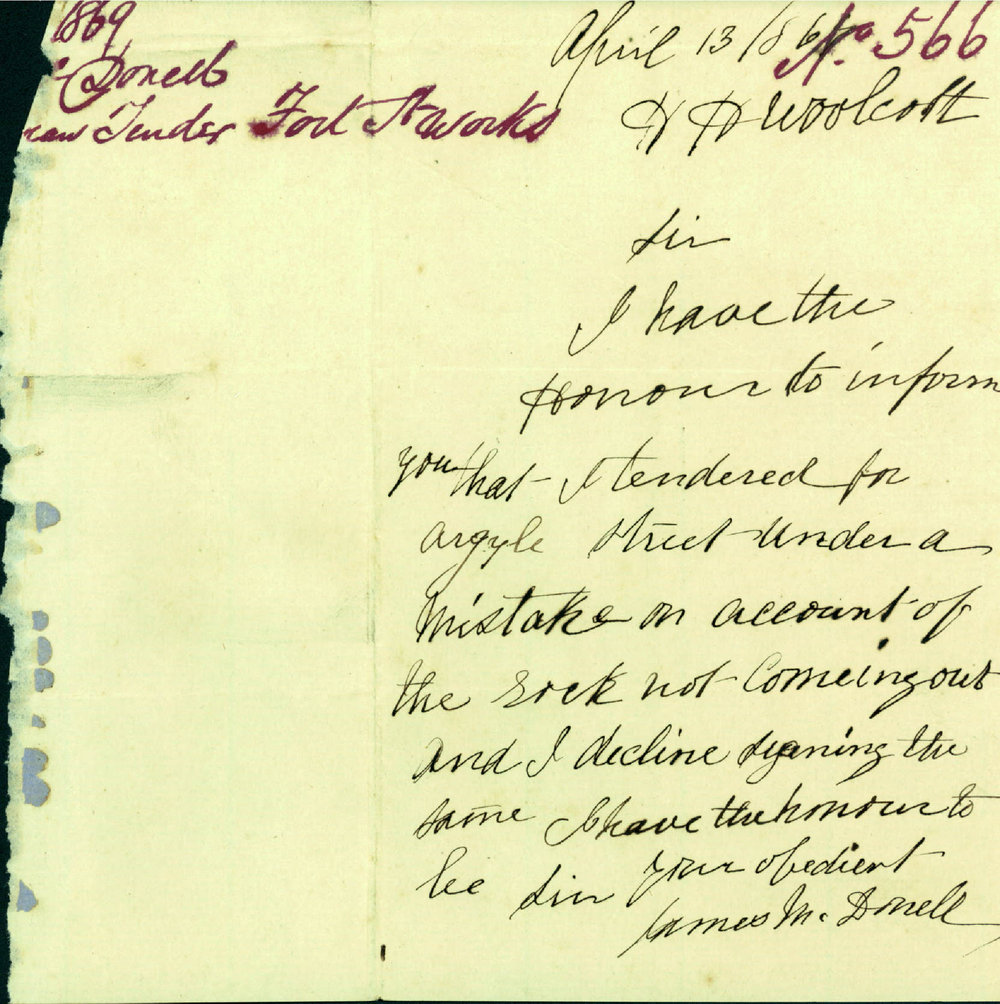 1869
Donell
Tender Fort St Works
No. 566
April 13/69
H H Woolcott
Sir
I have the
Honour to inform
you that I tendered for
argyle street under a
Mistake on account of
the rock not Comeing out
and I decline signing the
same I have the honour to
be Sir your obedient
James Mc Donell